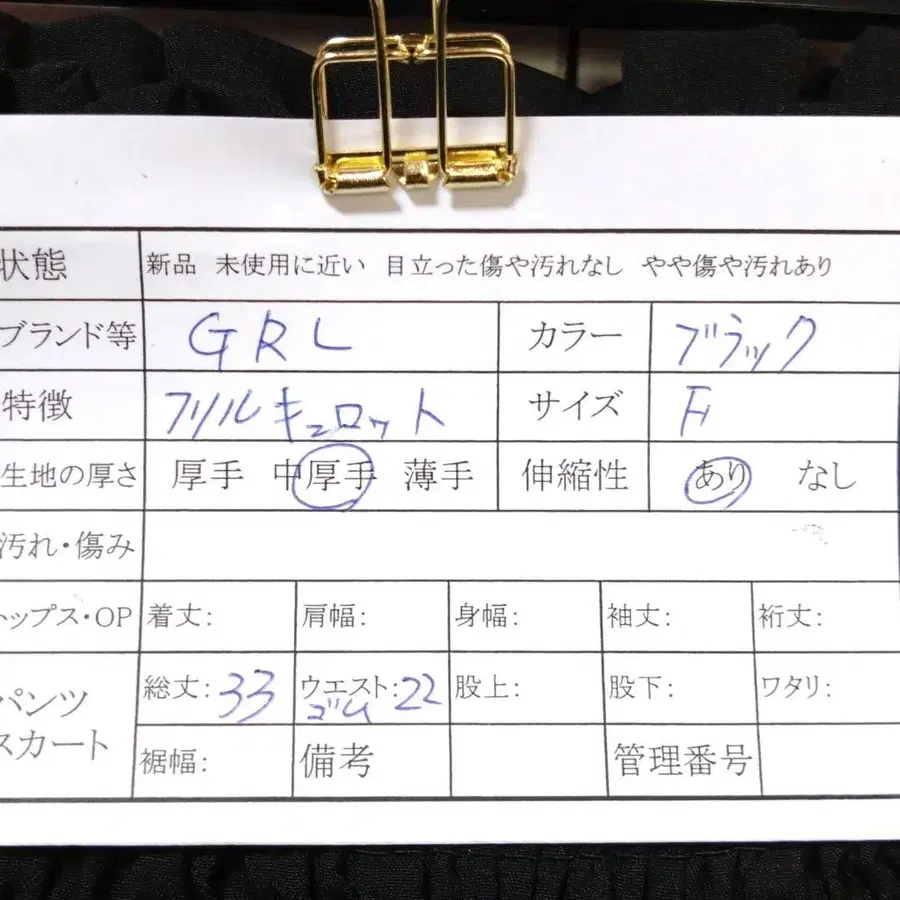 状態 新品 未使用に近い 目立った傷や汚れなし やや傷や汚れあり
ブランド等 GRL カラー ブラック
特徴 フリルキュロット サイズ F
生地の厚さ 厚手 中厚手 薄手 伸縮性 あり なし
汚れ・傷み
トップス・OP 着丈: 肩幅: 身幅: 袖丈: 裄丈:
パンツ 総丈:33 ウエスト:22 股上: 股下: ワタリ:
ゴム
スカート 裾幅: 備考 管理番号